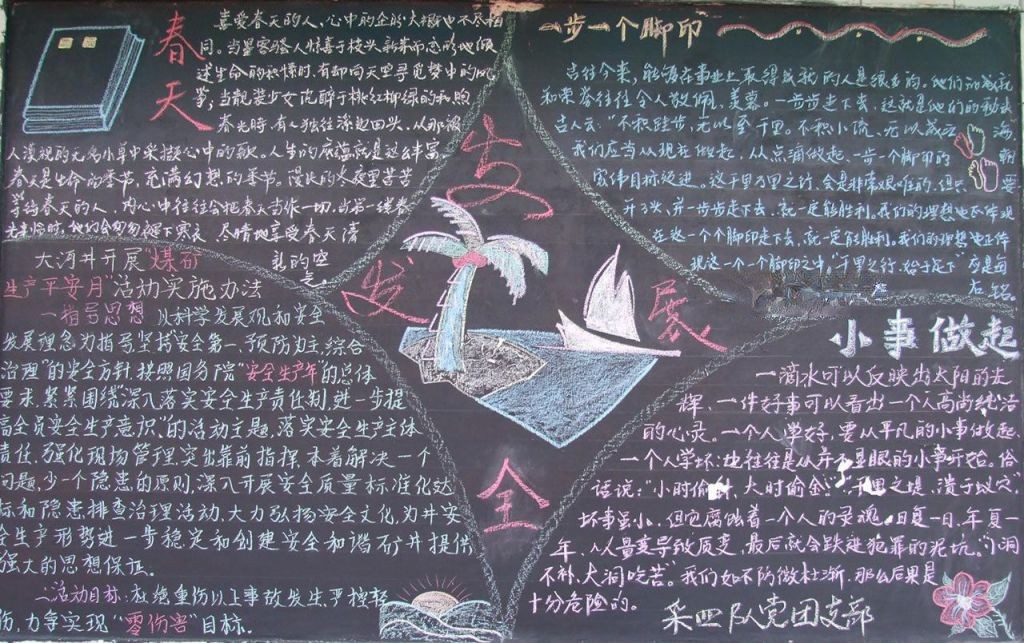 春天
喜爱春天的人、心中的企盼大概也不尽相
同。当星客骚人惊喜于枝头新
述生命的积情时,有却向天空寻觅梦中的风
筝,当靓装少女沉醉于桃红柳绿的和煦
春光時,有人独往深处回头、从那被
人漠视的无名小草中采撷心中的歌。人生的底蕴就是这么丰富。
春天是生命的季节,充满幻想的季节。漫长的冬夜里苦苦
等待春天的人,内心中往往会把春天当作一切,当第一缕春
光来临时,他们会匆匆褪下寒衣,尽情地享受春天清
新的空
气。
一步一个脚印
古往今来,能够在事业上取得成就的人是很多的。他们的成就
和荣誉往往令人敬佩、羡慕。一步步走下去,这就是他们的秘诀
古人云:"不积跬步,无以至千里。不积小流,无以成江海
我们应当从现在做起,从点滴做起,一步一个脚印的朝
宏伟目标迈进。这千里万里之行,会是非常艰难的,但只要
开了头,并一步步走下去,就一定能胜利。我们的理想也正体现
在这一个个脚印走下去,就一定能胜利。我们的理想也正体
现这一个一个脚印之中。"千里之行,始于足下"应是每
左铭。
安
发展
全
大河井开展煤矿
生产平安月"活动实施办法
一指导思想 以科学发展观和安全
发展理念为指导坚持"安全第一、预防为主,综合
治理"的安全方针,按照国务院"安全生产年"的总体
要求,紧紧围绕"深入落实安全生产责任制,进一步提
高全员安全生产意识"的活动主题,落实安全生产主体
责任,强化现场管理,突出靠前指挥,本着解决一个
问题,少一个隐患的原则,深入开展安全质量标准化达
标和隐患排查治理活动,大力弘扬安全文化,为井安
全生产形势进一步稳定和创建安全和谐矿井提供
强大的思想保证。
二活动目标:杜绝重伤以上事故发生,严控轻
伤,力争实现"零伤害"目标。
小事做起
一滴水可以反映出太阳的光
辉、一件好事可以看出一个人高尚纯洁
的心灵。一个人学好,要从平凡的小事做起、
一个人学坏,也往往是从并不显眼的小事开始。俗
话说:"小时偷针,大时偷金""千里之堤,溃于蚁穴"
坏事虽小,但它腐蚀着一个人的灵魂,日复一日,年复一
年、从量变导致质变,最后就会跌进犯罪的泥坑。"小洞
不补,大洞吃苦"。我们如不防微杜渐,那么后果是
十分危险的。
采四队党团支部